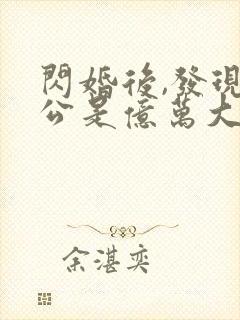 閃婚後,發現
公是億萬大
余湛奕